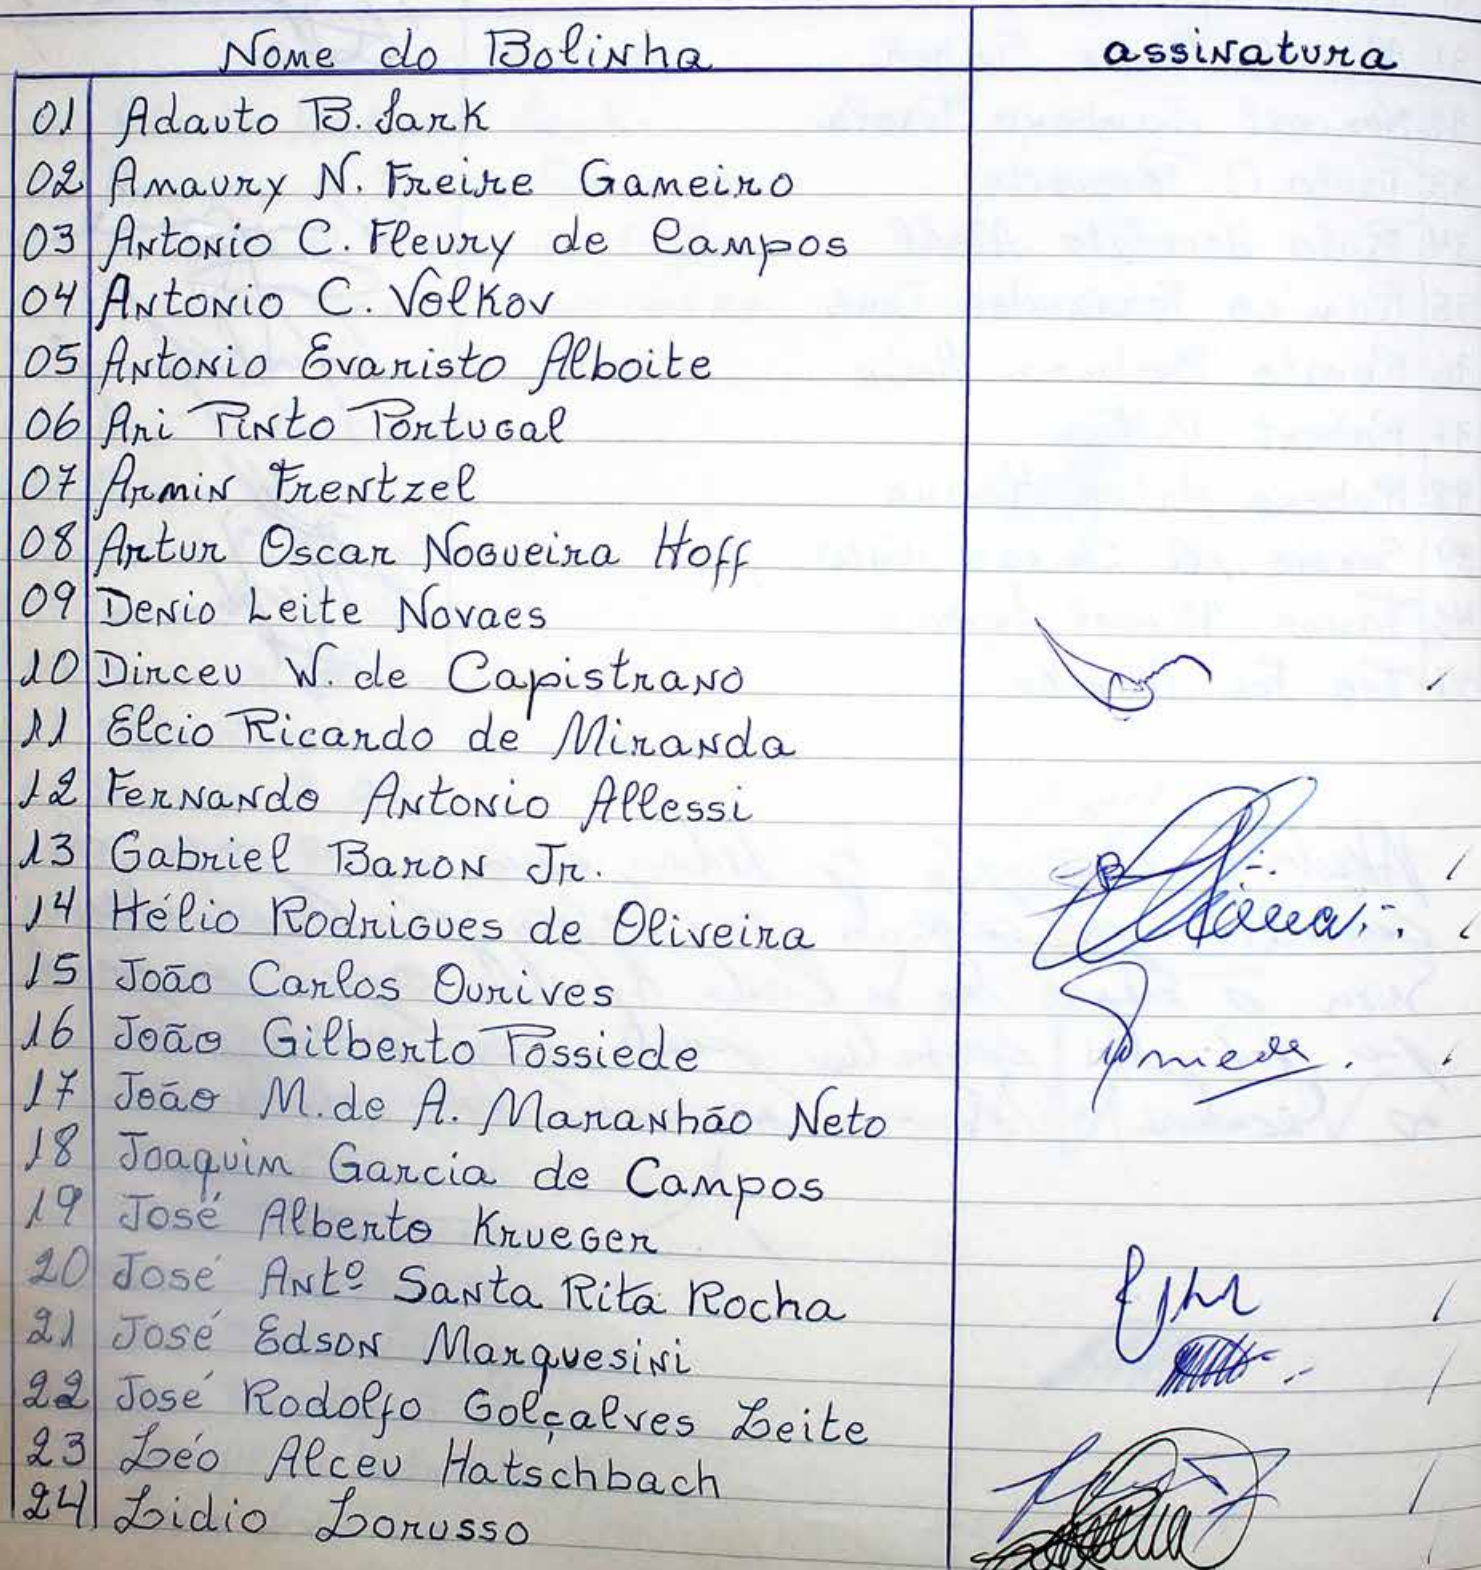 Nome do Bolinha assinatura
01 Adauto B. Sark
02 Amaury N. Freire Gameiro
03 Antonio C. Fleury de Campos
04 Antonio C. Volkov
05 Antonio Evaristo Alboite
06 Ari Pinto Portugal
07 Armin Frentzel
08 Artur Oscar Nogueira Hoff
09 Denio Leite Novaes
10 Dirceu W. de Capistrano
11 Elcio Ricardo de Miranda
12 Fernando Antonio Allessi
13 Gabriel Baron Jr.
14 Hélio Rodrigues de Oliveira
15 João Carlos Ourives
16 João Gilberto Possiede
17 João M. de A. Maranhão Neto
18 Joaquim Garcia de Campos
19 José Alberto Krueger
20 José Antº Santa Rita Rocha
21 José Edson Marquesini
22 José Rodolfo Golçalves Leite
23 Léo Alceu Hatschbach
24 Lidio Lorusso